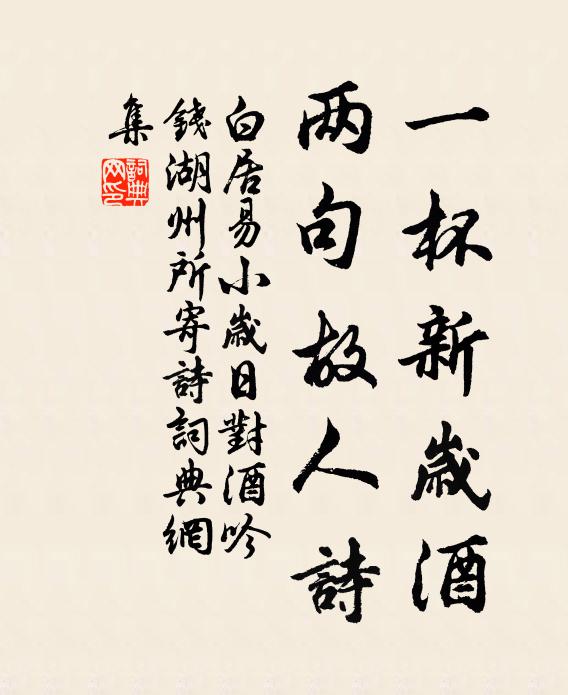 一杯新歲酒
两句故人詩
白居易小歲日對酒吟
錢湖州所寄詩詞典網
集
詞典
网印